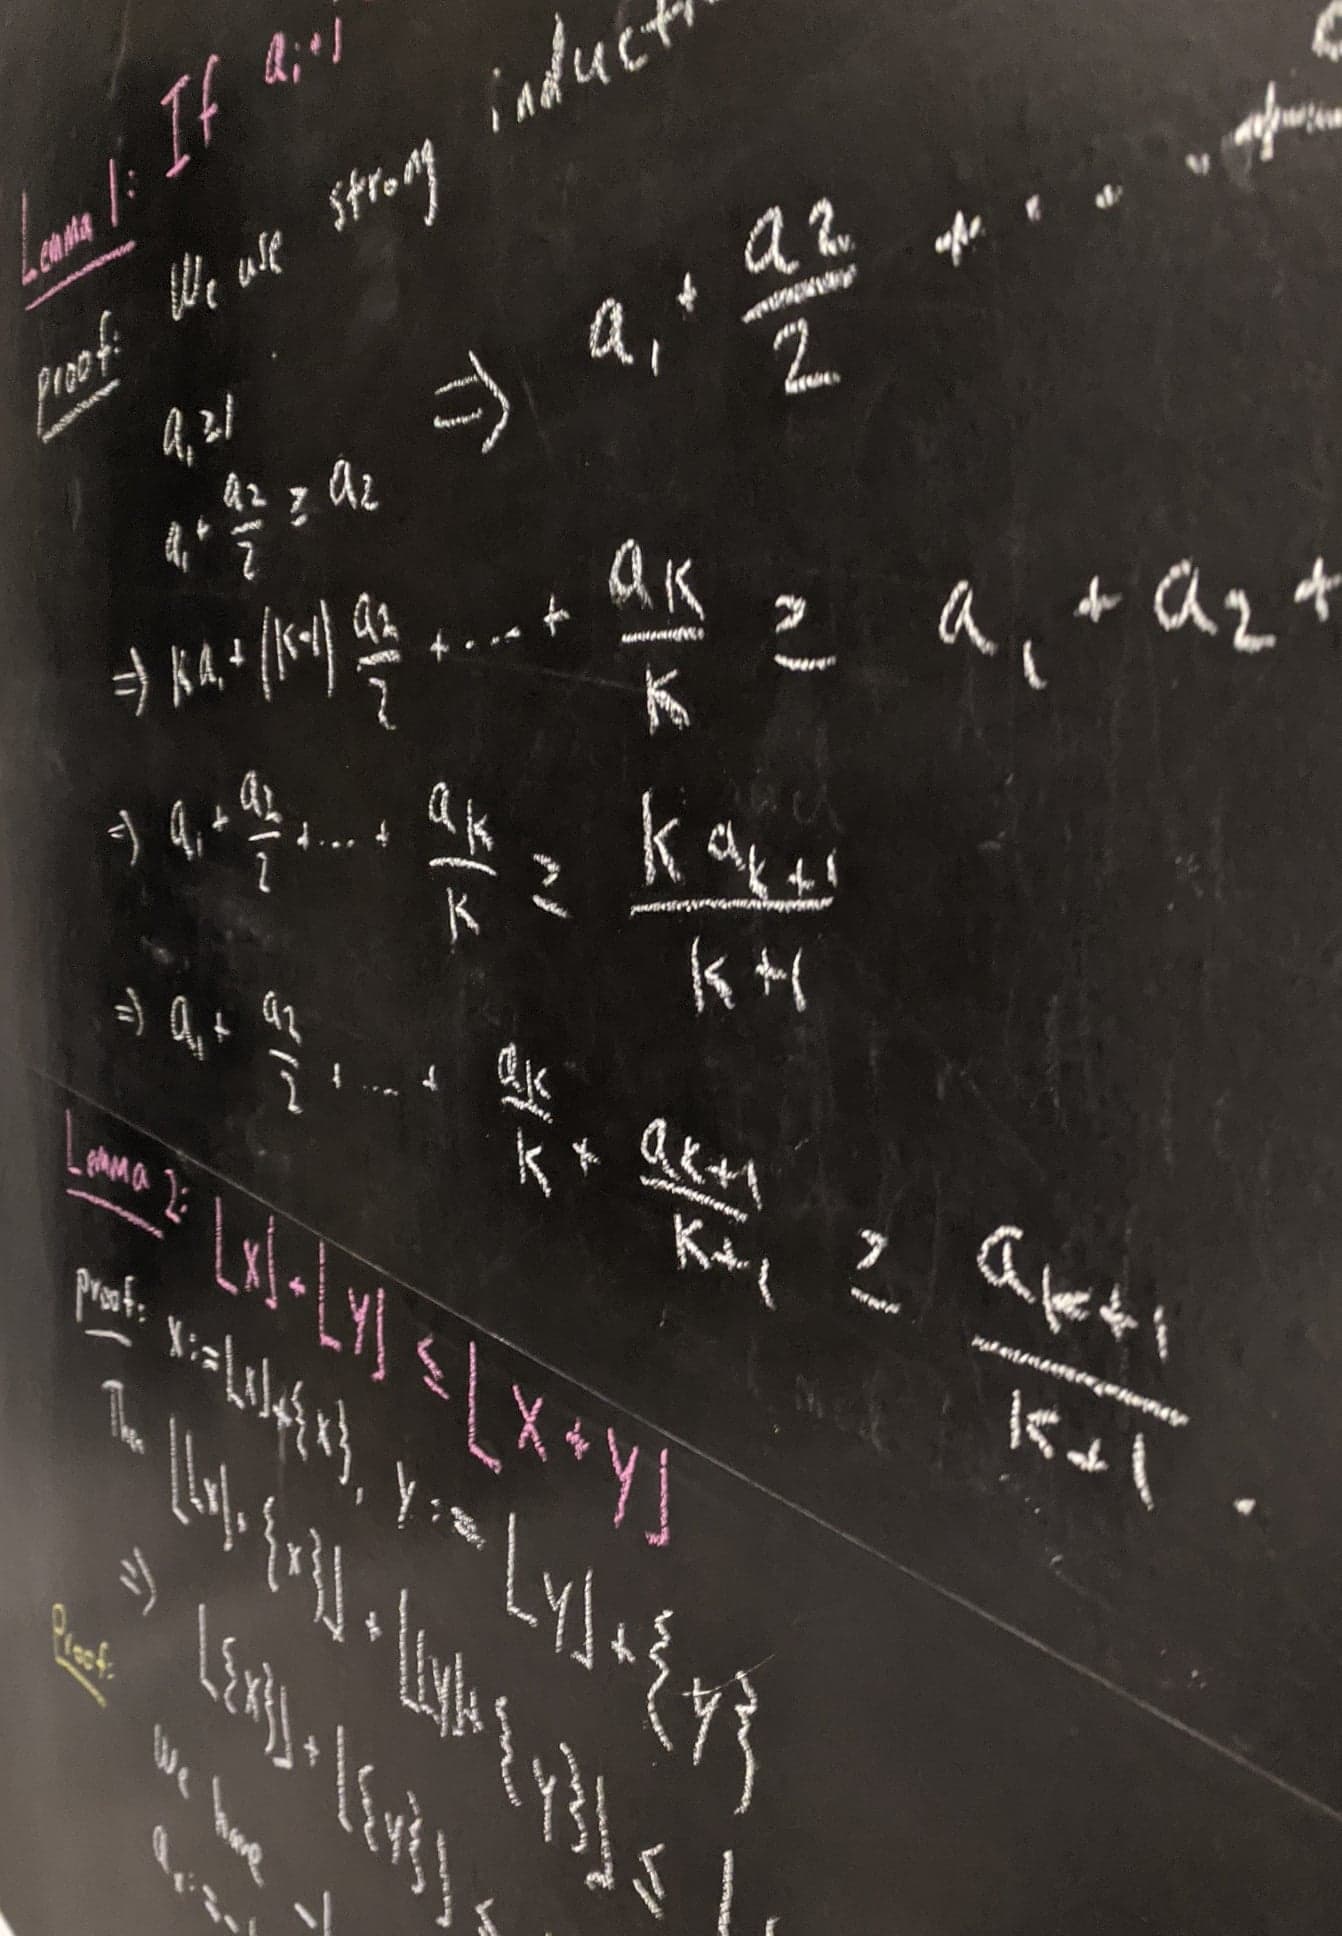 Lemma 1: If a_{i+j}
Proof: We use strong induct
a_1 ≥ 1 ⇒ a_1 + \frac{a_2}{2} + ...
a_1 + \frac{a_2}{2} ≥ a_2
⇒ k a_1 + (k-1) \frac{a_2}{2} + ... + \frac{a_k}{k} ≥ a_1 + a_2 +
⇒ a_1 + \frac{a_2}{2} + ... + \frac{a_k}{k} ≥ \frac{k a_{k+1}}{k+1}
⇒ a_1 + \frac{a_2}{2} + ... + \frac{a_k}{k} + \frac{a_{k+1}}{k+1} ≥ \frac{a_{k+1}}{k+1} .
Lemma 2: ⌊x⌋ + ⌊y⌋ ≤ ⌊x+y⌋
Proof: x := ⌊x⌋ + {x}, y := ⌊y⌋ + {y}
Then ⌊⌊x⌋ + {x}⌋ + ⌊⌊y⌋ + {y}⌋ ≤ ⌊
⇒ ⌊{x}⌋ + ⌊{y}⌋ ≤
Proof: We have